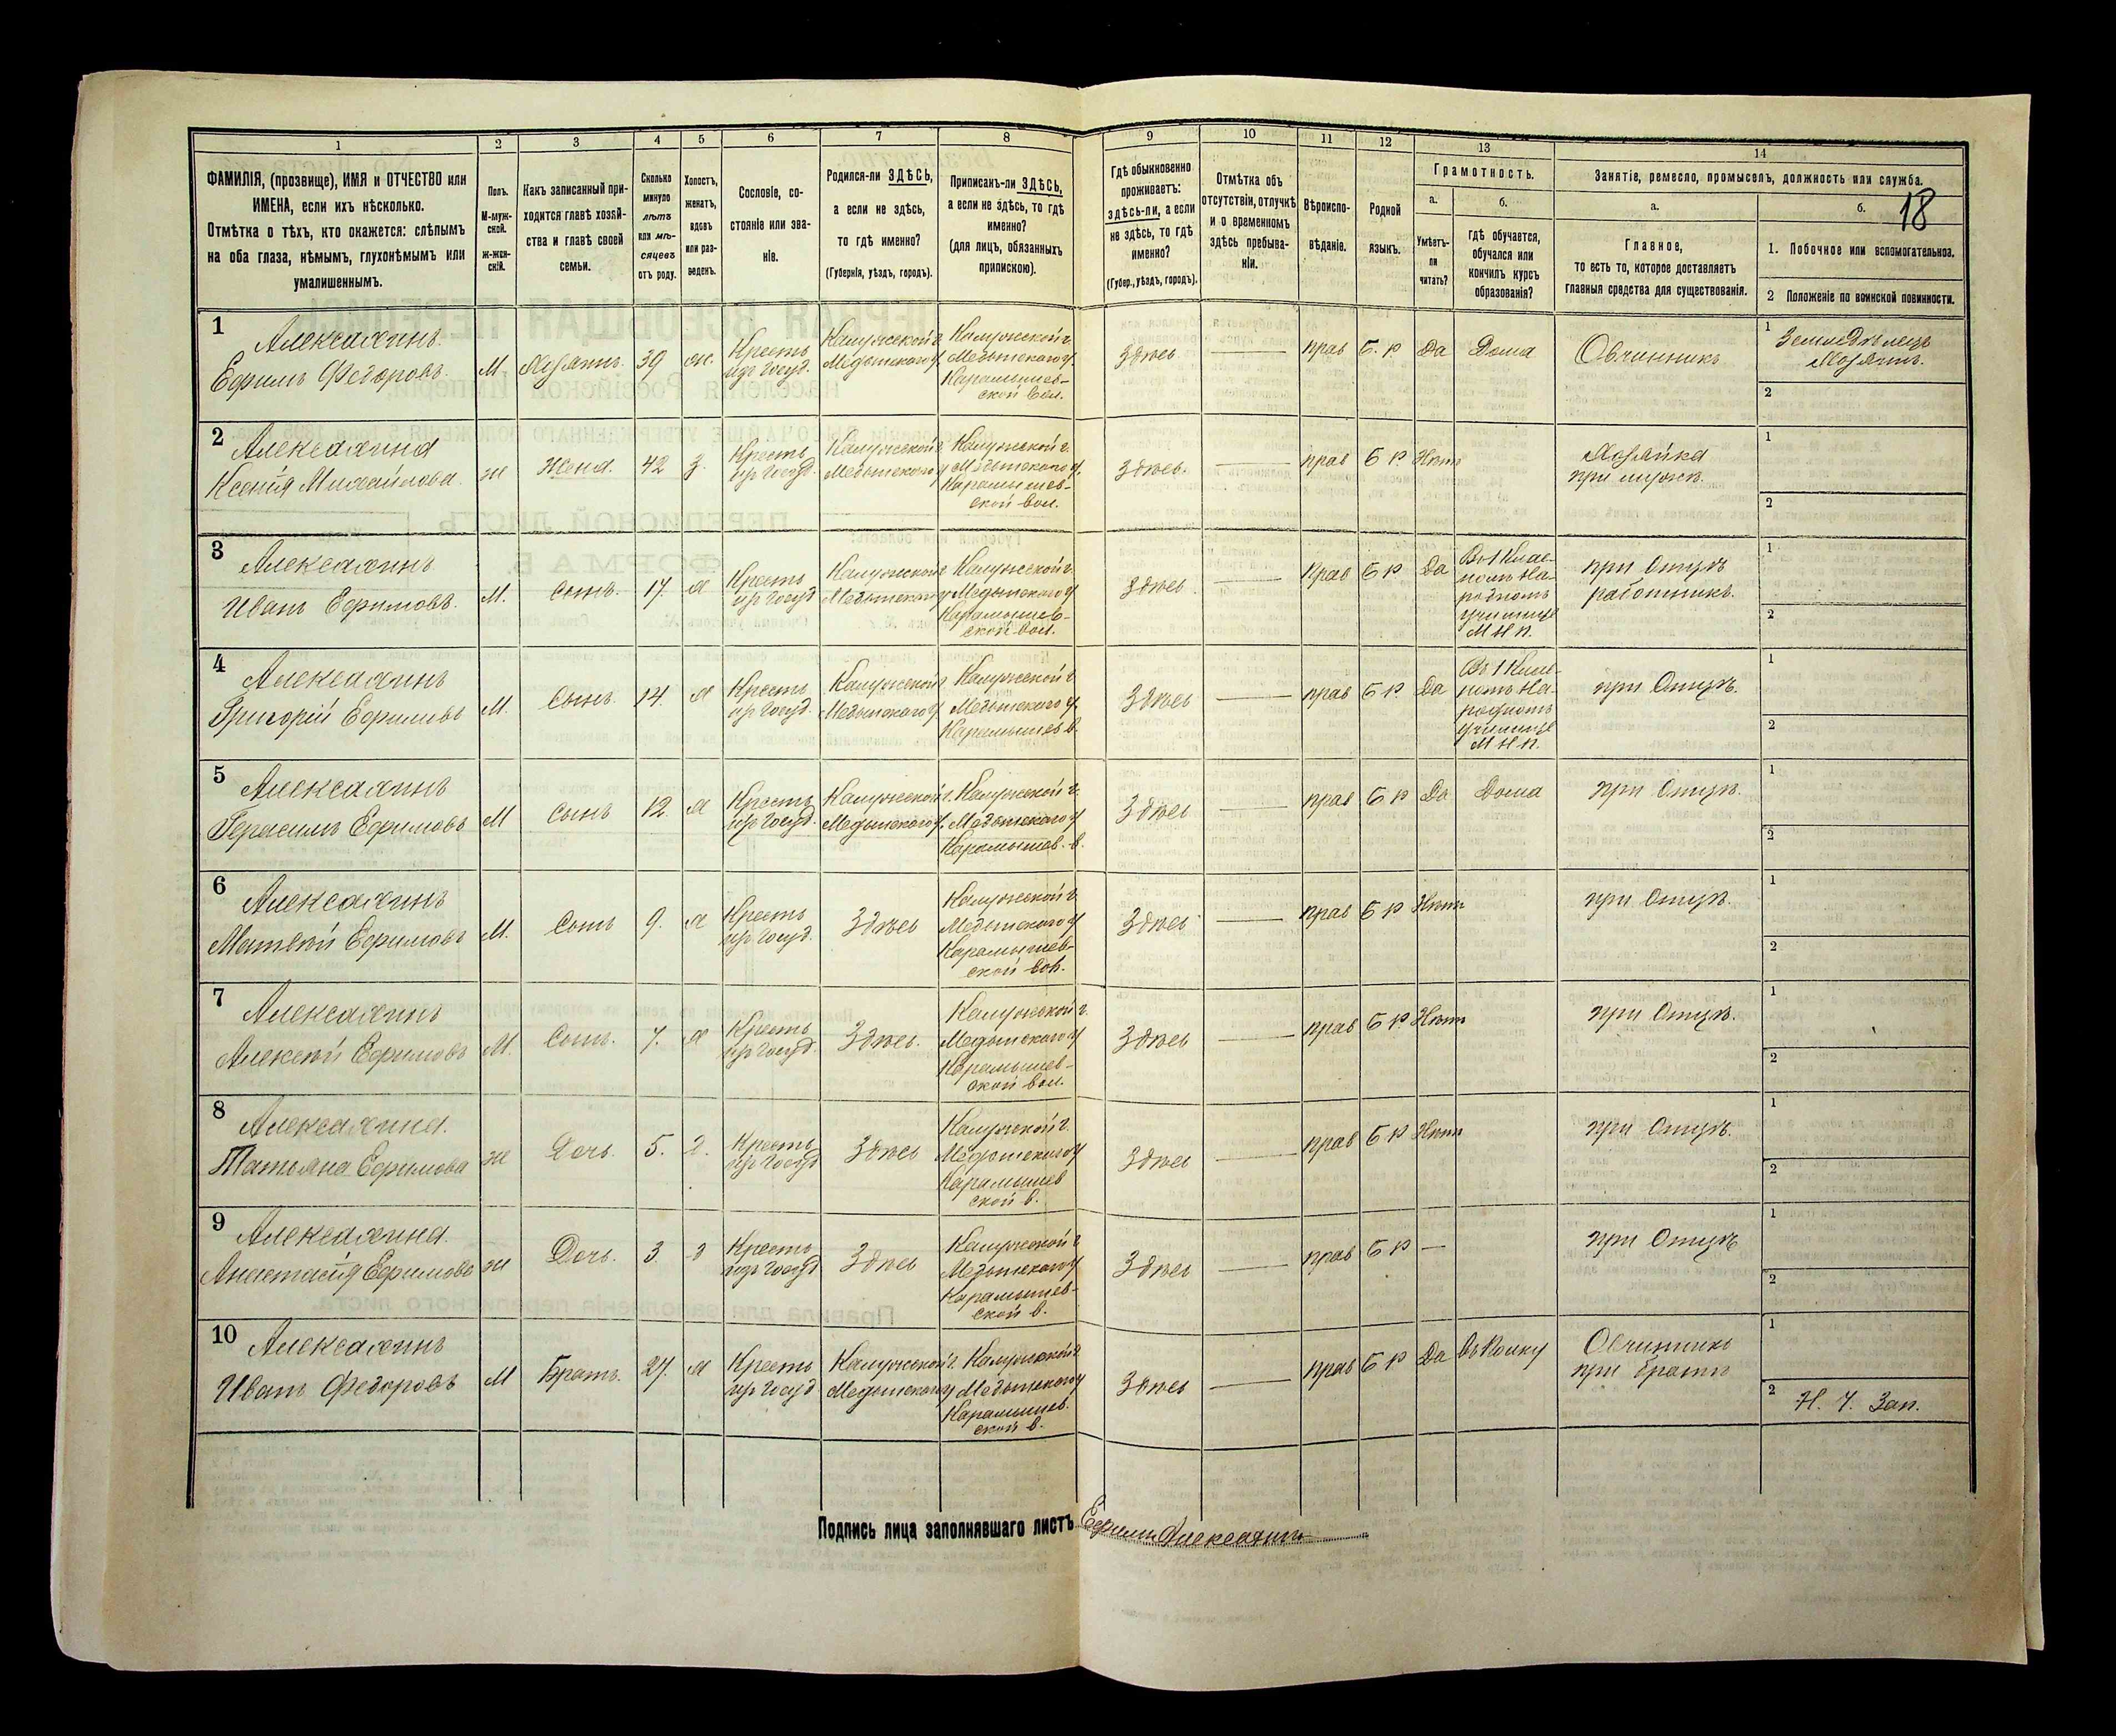 1 2 3 4 5 6 7 8 9 10 11 12 13 14
ФАМИЛІЯ, (прозвище), ИМЯ и ОТЧЕСТВО или
ИМЕНА, если ихъ нѣсколько.
Отмѣтка о тѣхъ, кто окажется: слѣпымъ
на оба глаза, нѣмымъ, глухонѣмымъ или
умалишеннымъ.
Полъ.
М-муж-
ской.
Ж-жен-
скій.
Какъ записанный при-
ходится главѣ хозяй-
ства и главѣ своей
семьи.
Сколько
минуло
лѣтъ
или мѣ-
сяцевъ
отъ роду.
Холостъ,
женатъ,
вдовъ
или раз-
веденъ.
Сословіе, со-
стояніе или зва-
ніе.
Родился-ли ЗДѢСЬ,
а если не здѣсь,
то гдѣ именно?
(Губернія, уѣздъ, городъ).
Приписанъ-ли ЗДѢСЬ,
а если не здѣсь, то гдѣ
именно?
(для лицъ, обязанныхъ
припискою).
Гдѣ обыкновенно
проживаетъ:
здѣсь-ли, а если
не здѣсь, то гдѣ
именно?
(Губер., уѣздъ, городъ).
Отмѣтка объ
отсутствіи, отлучкѣ
и о временномъ
здѣсь пребыва-
ніи.
Вѣроиспо-
вѣданіе.
Родной
языкъ.
Грамотность.
а.
Умѣетъ-
ли
читать?
б.
Гдѣ обучается,
обучался или
кончилъ курсъ
образованія?
Занятіе, ремесло, промыселъ, должность или служба.
а.
Главное,
то есть то, которое доставляетъ
главныя средства для существованія.
б.
18
1. Побочное или вспомогательное.
2 Положеніе по воинской повинности.
1
Алексахинъ
Ефимъ Ѳедоровъ
М.
Хозяинъ
39
ж.
Кресть
изъ Госуд.
Калужской г
Медынскаго у.
Калужской г.
Медынскаго у.
Карамышев-
ской вол.
Здѣсь
прав
Б. Р
Да
Дома
Овчинникъ
1
Земледѣлецъ
Хозяинъ.
2
2
Алексахина
Ксенія Михайлова
ж
Жена.
42
з.
Кресть
изъ Госуд.
Калужской г
Медынскаго у
Калужской г.
Медынскаго у.
Карамышев-
ской вол.
Здѣсь.
прав
Б Р
Нѣтъ
Хозяйка
при мужѣ.
1
2
3
Алексахинъ
Иванъ Ефимовъ.
М.
Сынъ.
17
х
Кресть
изъ Госуд
Калужской г
Медынскаго у
Калужской г.
Медынскаго у
Карамышев-
ской вол.
Здѣсь
Прав
Б Р
Да
Въ 1 Клас-
номъ На-
родномъ
училищѣ
М Н П.
при Отцѣ
работникъ.
1
2
4
Алексахинъ
Григорій Ефимовъ
М.
Сынъ.
14.
х
Кресть
изъ Госуд.
Калужской г
Медынскаго у.
Калужской г
Медынскаго у.
Карамышев в.
Здѣсь
прав
Б Р
Да
Въ 1 Клас-
номъ На-
родномъ
училищѣ
М Н П.
при Отцѣ.
1
2
5
Алексахинъ
Герасимъ Ефимовъ
М
Сынъ
12
х
Кресть
изъ Госуд.
Калужской г.
Медынскаго у.
Калужской г.
Медынскаго у
Карамышев. в.
Здѣсь
прав
Б Р
Да
Дома
при Отцѣ.
1
2
6
Алексахинъ
Матвѣй Ефимовъ
М.
Сынъ
9.
х
Кресть
изъ Госуд.
Здѣсь
Калужской г.
Медынскаго у
Карамышев-
ской вол.
Здѣсь
прав
Б Р
Нѣтъ
при Отцѣ.
1
2
7
Алексахинъ
Алексѣй Ефимовъ
М.
Сынъ.
7.
х
Кресть
изъ Госуд.
Здѣсь.
Калужской г.
Медынскаго у
Карамышев-
ской вол.
Здѣсь
прав
Б Р
Нѣтъ
при Отцѣ.
1
2
8
Алексахина.
Татьяна Ефимова
ж
Дочь.
5.
д.
Кресть
изъ Госуд
Здѣсь
Калужской г.
Медынскаго у
Карамышев
ской в.
Здѣсь
прав
Б Р
Нѣтъ
при Отцѣ.
1
2
9
Алексахина.
Анастасія Ефимова
ж
Дочь.
3
д
Кресть
изъ Госуд
Здѣсь
Калужской г
Медынскаго у
Карамышев-
ской в.
Здѣсь
прав
Б Р
—
при Отцѣ
1
2
10
Алексахинъ
Иванъ Ѳедоровъ
М
Братъ.
27.
х
Кресть
изъ Госуд
Калужской г.
Медынскаго у
Калужской г
Медынскаго у
Карамышев.
ской в.
Здѣсь
прав
Б Р
Да
Въ Полку
Овчинникъ
при братѣ
1
2
Н. Ч. Зап.
Подпись лица заполнявшаго листъ Ефимъ Алексахинъ